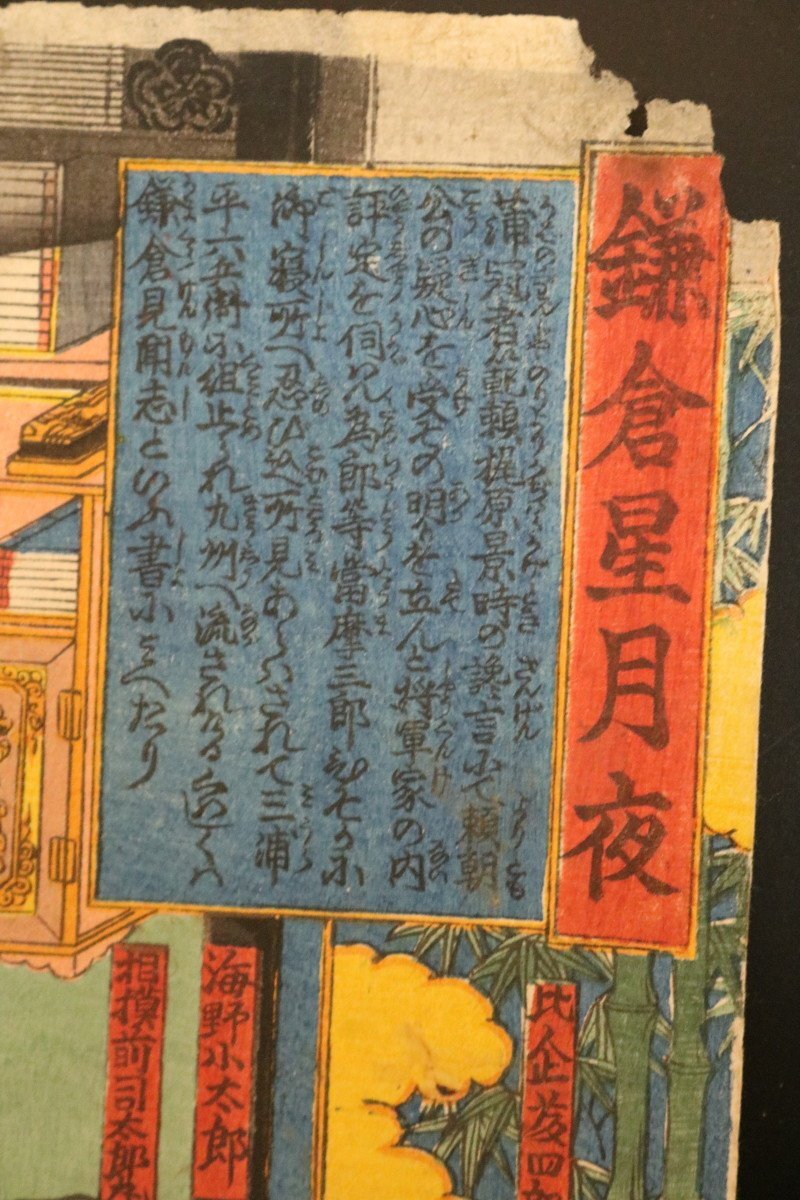 鎌倉星月夜
蒲冠者範頼梶原景時の讒言にて頼朝
公の疑心を受その明かを立んと将軍家の内
評定を伺はん為郎等當摩三郎ひそかに
御寝所へ忍び込所見あらはされて三浦
平六兵衛に組止られ九州へ流されける
鎌倉見聞志といふ書にみへたり
海野小太郎
相摸前司太郎
比企藤四郎